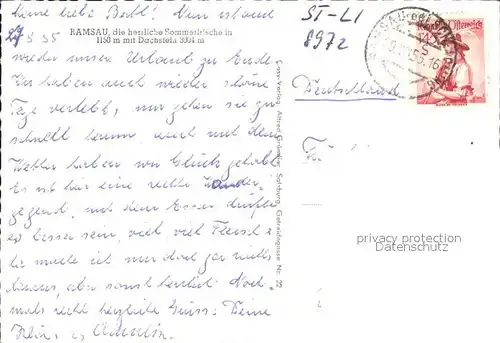 meine liebe Berte! Nun ist auch
27/8 55
RAMSAU, die herrliche Sommerfrische in
1150 m mit Dachstein 3004 m
wieder unser Urlaub zu Ende.
Wir haben auch wieder schöne
Tage verlebt, nur gehen sie zu
schnell herum, auch mit dem
Wetter haben wir Glück gehabt
Es ist hier eine rechte Wander-
gegend, mit dem Essen dürfte
es besser sein, viel viel Fleisch
ich mir doch gar nichts
daraus, aber sonst herrlich. Noch-
mals recht herzliche Grüsse Deine
ST-LI
8972
Deutschland
Cosy-Verlag Alfred Gründler, Salzburg, Getreidegasse Nr. 22
Österreich
privacy protection
Datenschutz